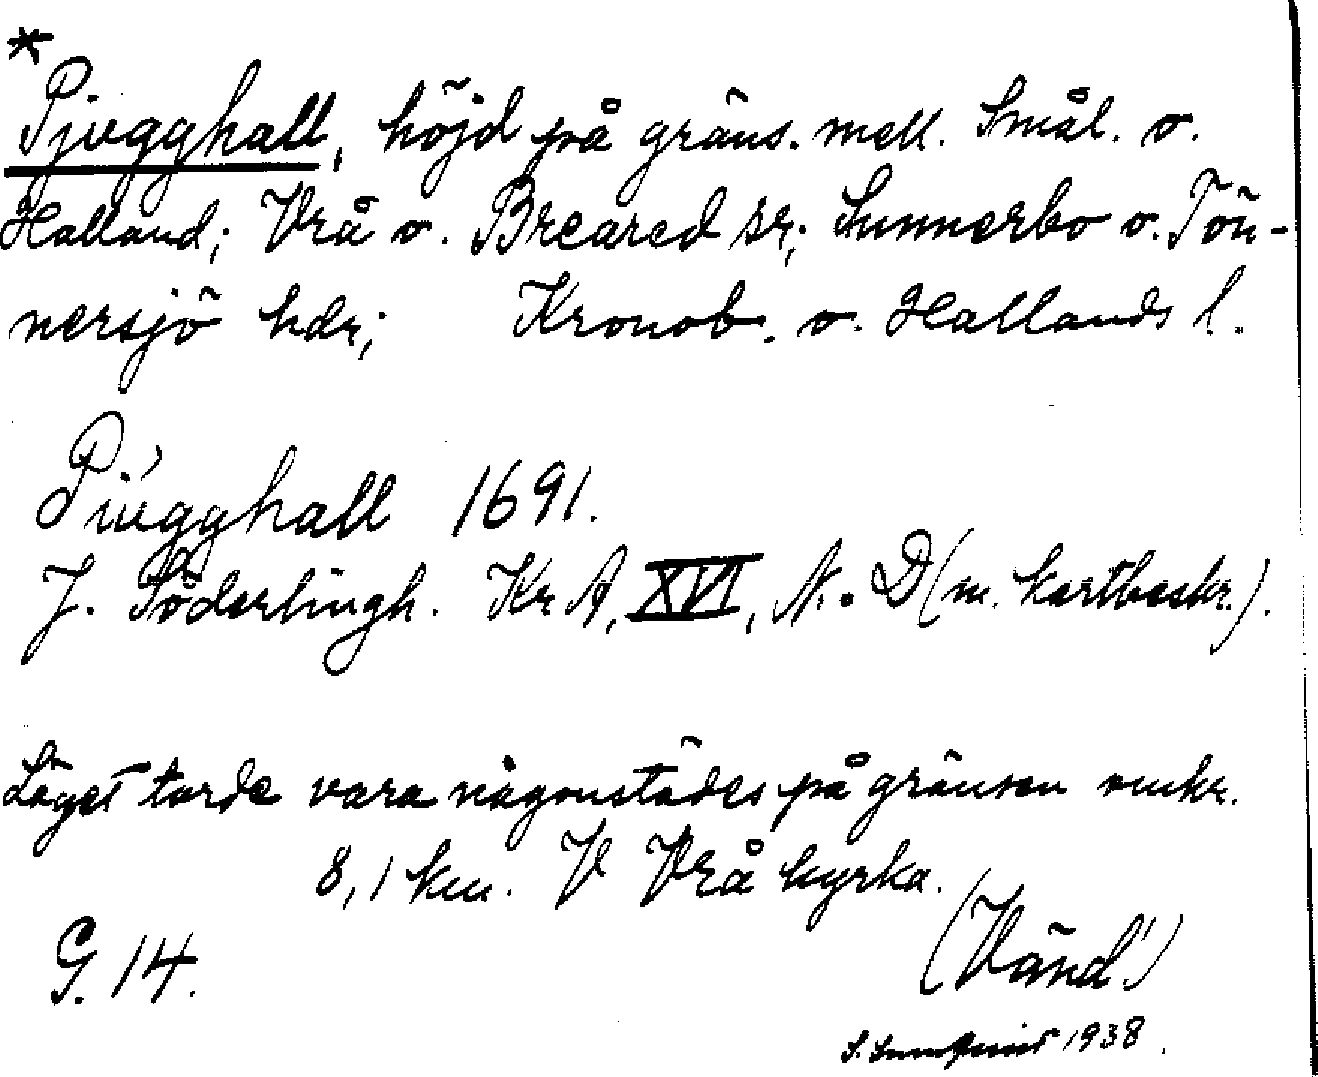 *
Pjugghall, höjd på gräns. mell. Smål. o.
Halland; Vrå o. Breared sr; Sunnerbo o. Tön-
nersjö hdr; Kronob. o. Hallands l.
Piugghall 1691.
J. Söderlingh. Kr A, XVI, N:o D (m. kartbeskr.).
Läget torde vara någonstädes på gränsen omkr.
8,1 km. V Vrå kyrka.
G. 14.
(Vänd!)
S. Sunnqvist 1938.